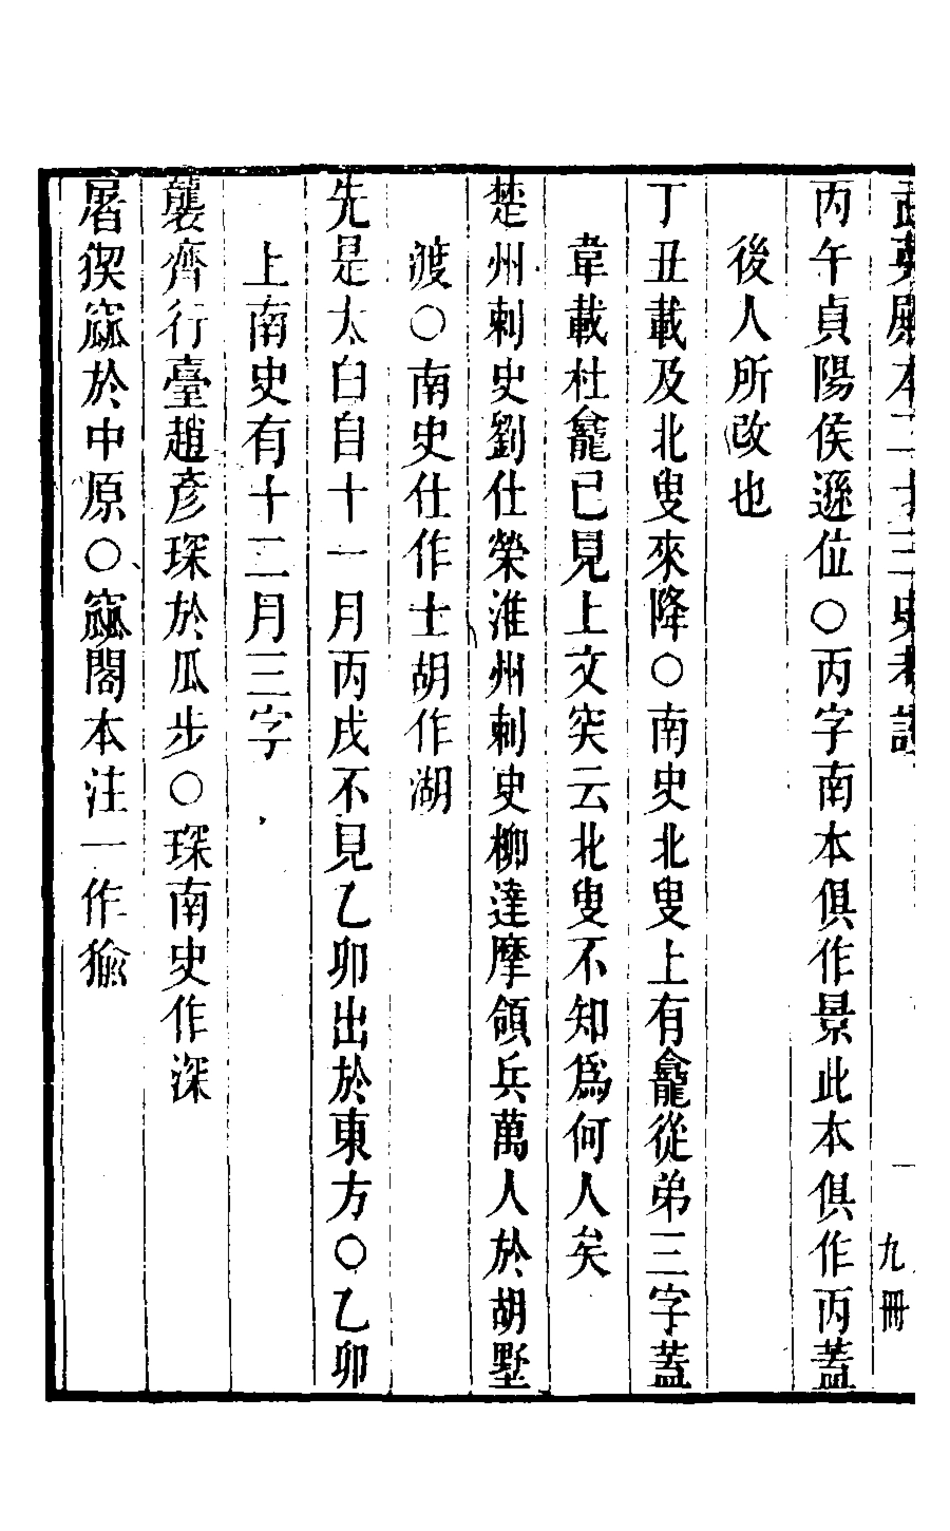 武英殿本二十三史考證
一
九冊
丙午貞陽侯遜位○丙字南本俱作景此本俱作丙蓋
後人所改也
丁丑載及北叟來降○南史北叟上有龕從弟三字蓋
韋載杜龕已見上文突云北叟不知爲何人矣
楚州刺史劉仕榮淮州刺史柳達摩領兵萬人於胡墅
渡○南史仕作士胡作湖
先是太白自十一月丙戌不見乙卯出於東方○乙卯
上南史有十二月三字
襲齊行臺趙彥琛於瓜步○琛南史作深
屠猰窳於中原○窳閣本注一作㺄